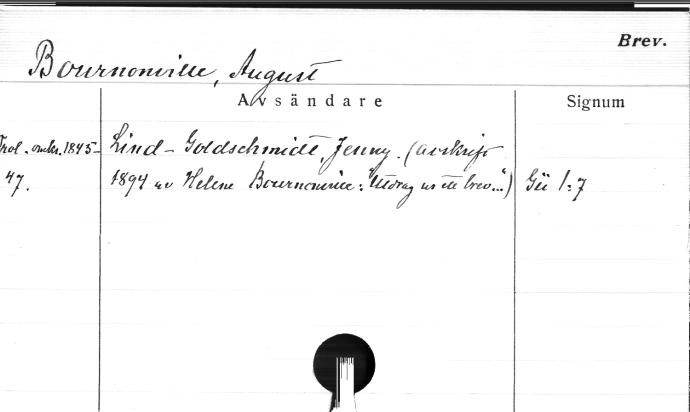 Brev.
Bournonville, August
Avsändare Signum
Trol. omkr. 1845- Lind-Goldschmidt, Jenny. (avskrift
47. 1894 av Helene Bournonville: "Utdrag ur ett brev...") Gü 1:7